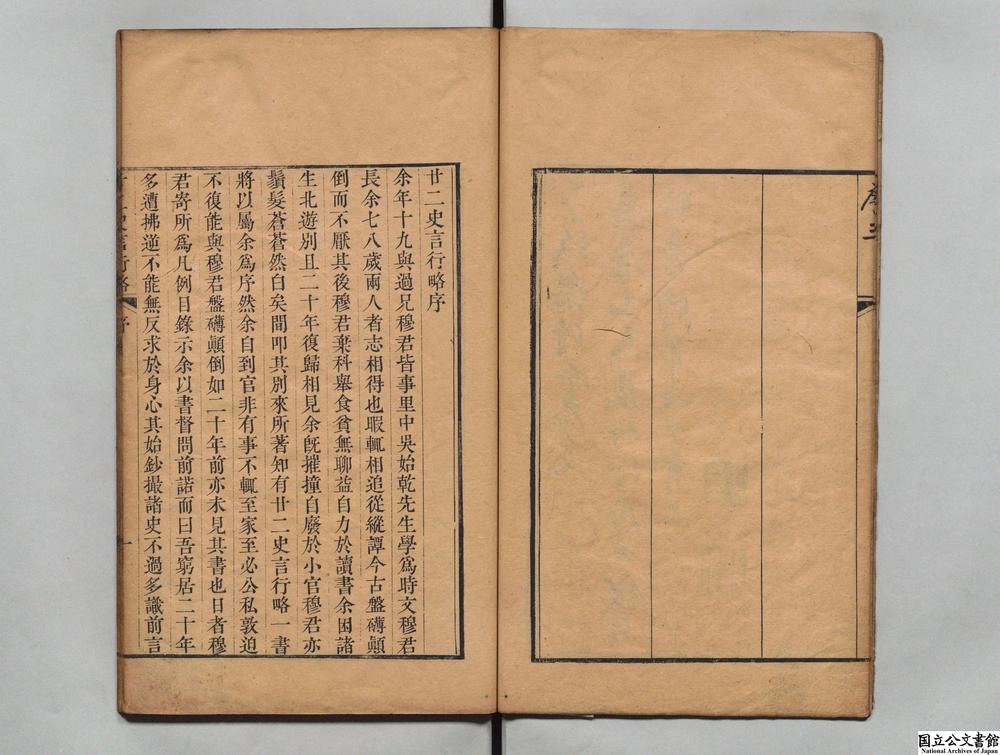 廿二史言行略序
余年十九與過兄穆君皆事里中吳始乾先生學爲時文穆君
長余七八歲兩人者志相得也暇輒相追從縱譚今古盤礴顛
倒而不厭其後穆君棄科舉食貧無聊益自力於讀書余困諸
生北遊別且二十年復歸相見余旣摧撞自廢於小官穆君亦
鬚髮蒼蒼然白矣間叩其別來所著知有廿二史言行略一書
將以屬余爲序然余自到官非有事不輒至家至必公私敦迫
不復能與穆君盤礴顛倒如二十年前亦未見其書也日者穆
君寄所爲凡例目錄示余以書督問前諾而曰吾窮居二十年
多遭拂逆不能無反求於身心其始鈔撮諸史不過多識前言
史言行略
序
一
国立公文書館
National Archives of Japan